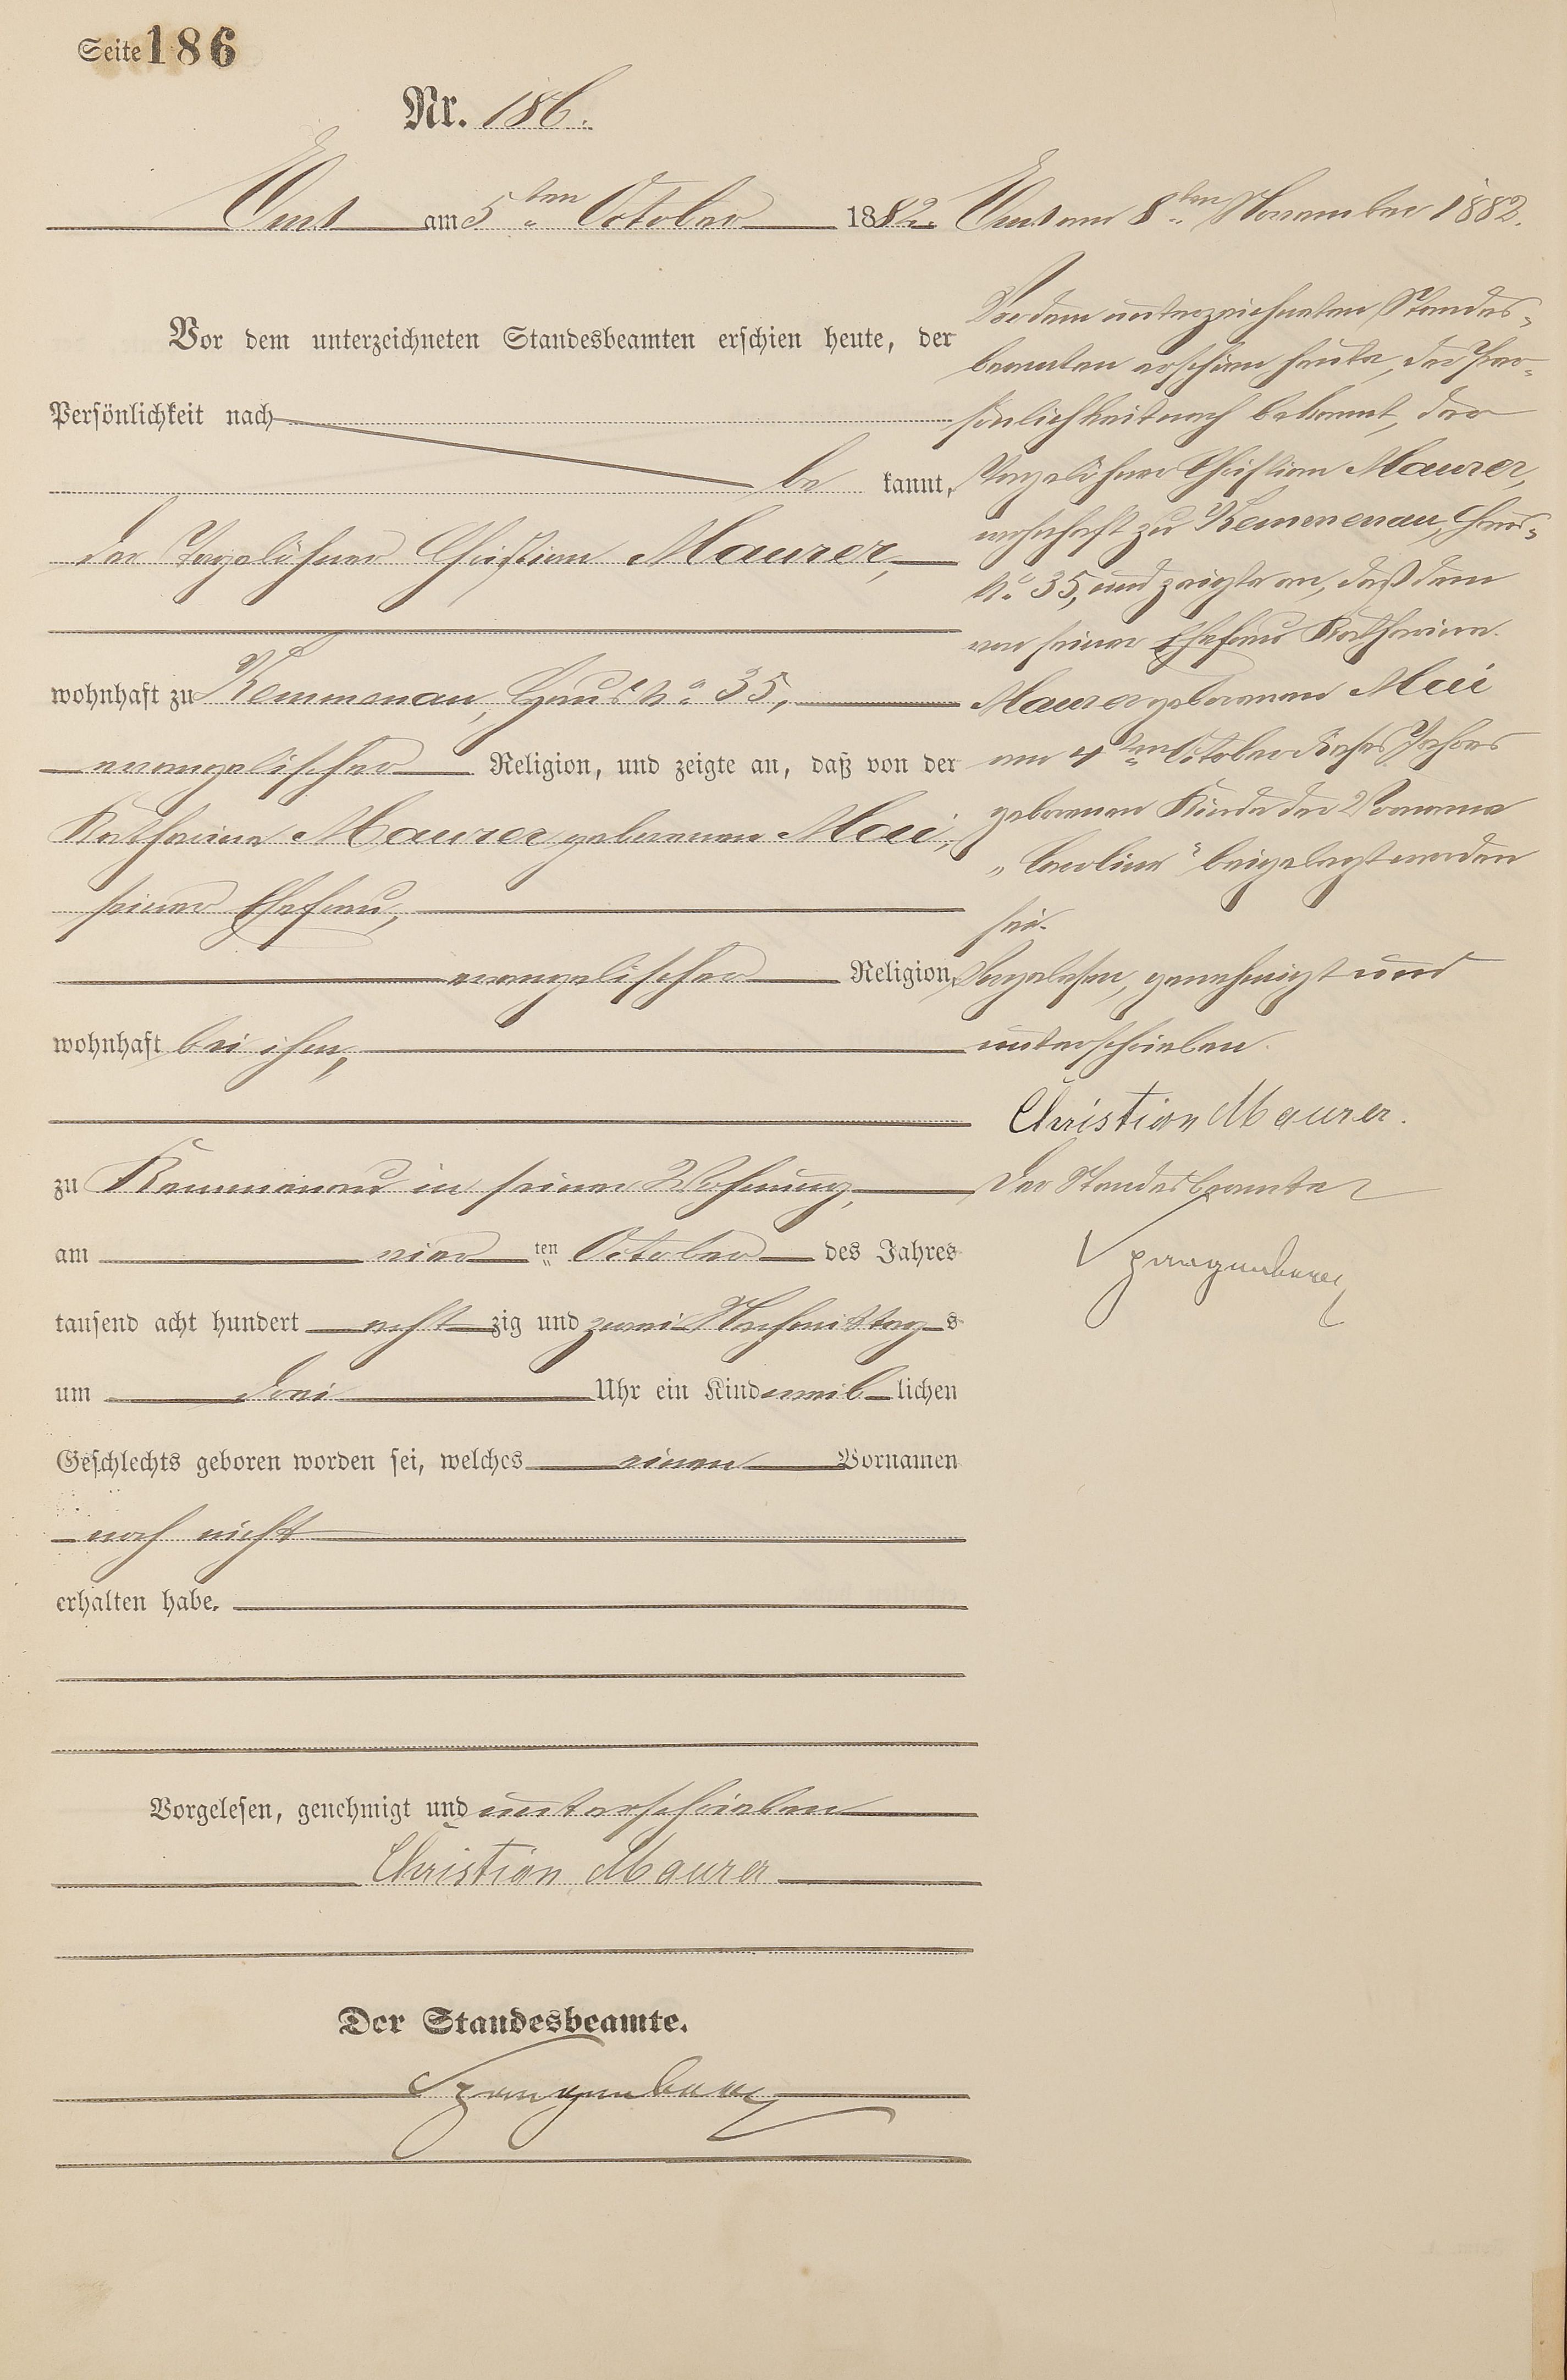 Seite 186
Nr. 186.
Ems am 5ten October 1882.
Vor dem unterzeichneten Standesbeamten erschien heute, der
Persönlichkeit nach
be kannt,
der Tagelöhner Christian Maurer,
wohnhaft zu Kemmenau, Haus No 35,
evangelischer Religion, und zeigte an, daß von der
Katharina Maurer geborenen Mai,
seiner Ehefrau,
evangelischer Religion,
wohnhaft bei ihm,
zu Kemmenau in seiner Wohnung,
am vier ten October des Jahres
tausend acht hundert acht zig und zwei Nachmittag s
um drei Uhr ein Kind weib lichen
Geschlechts geboren worden sei, welches einen Vornamen
noch nicht
erhalten habe.
Vorgelesen, genehmigt und unterschrieben
Christian Maurer
Der Standesbeamte.
Ems am 8ten November 1882.
Vor dem unterzeichneten Standes-
beamten erschien heute, der Per-
sönlichkeit nach bekannt, der
Tagelöhner Christian Maurer,
wohnhaft zu Kemmenau, Haus-
No 35, und zeigte an, daß dem
von seiner Ehefrau Katharina
Maurer geborenen Mai
am 4ten October dieses Jahres
geborenen Kinde der Vorname
„Caroline“ beigelegt worden
sei.
Vorgelesen, genehmigt und
unterschrieben.
Christian Maurer.
Der Standesbeamte